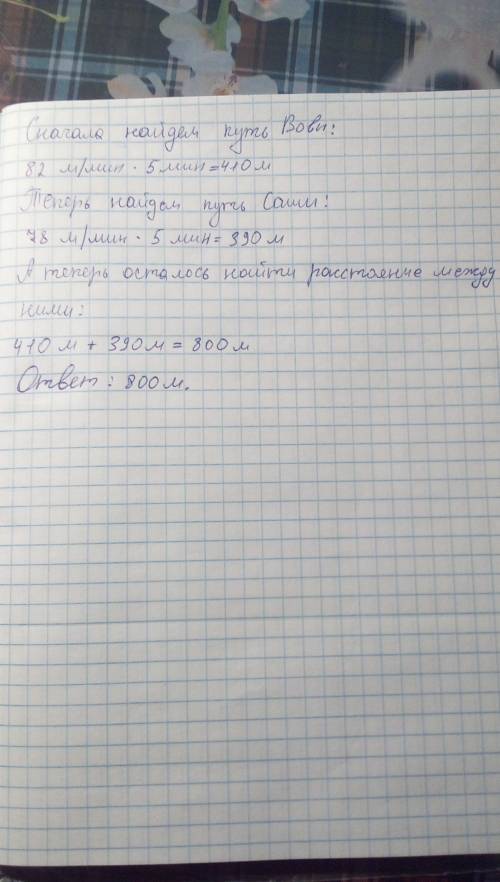 Сначала найдем путь Вовы:
82 м/мин · 5 мин = 410 м
Теперь найдем путь Саши:
78 м/мин · 5 мин = 390 м
А теперь осталось найти расстояние между
ними:
410 м + 390 м = 800 м
Ответ: 800 м.